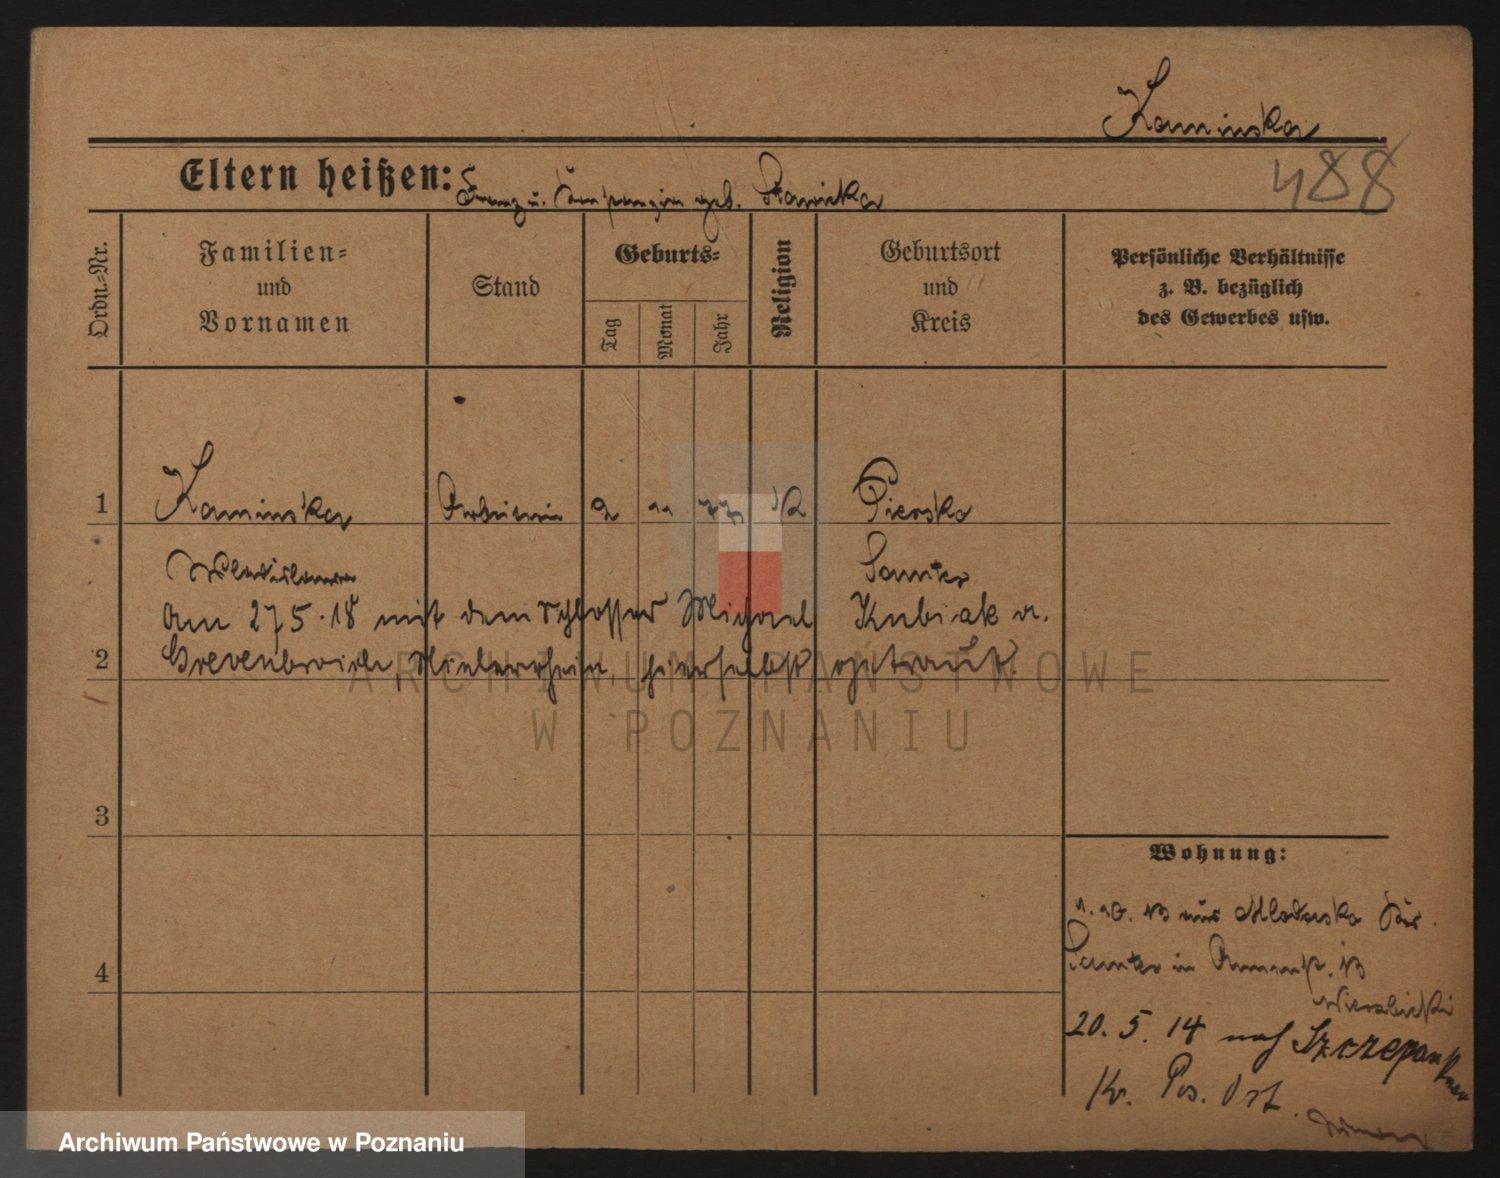 Kaminska
488
Eltern heißen: Franz u. geb. Stanicka
Ordn.-Nr.
Familien- und Vornamen
Stand
Geburts-
Tag
Monat
Jahr
Religion
Geburtsort und Kreis
Persönliche Verhältnisse
z. B. bezüglich
des Gewerbes usw.
1 Kaminska Arbeiterin 2 11 77 K Piersko
Wladislawa Samter
am 27 5. 18 mit dem Schlosser Michael Kubiak a.
2 Grevenbroich, Niederrhein, hierselbst getraut.
3
4
Wohnung:
1. 10. 13 aus Mlodasko Kr.
Samter in 13
Wierzbicki
20. 5. 14 nach Szczepankowo
Kr. Pos. Ost.
ARCHIWUM PAŃSTWOWE
W POZNANIU
Archiwum Państwowe w Poznaniu